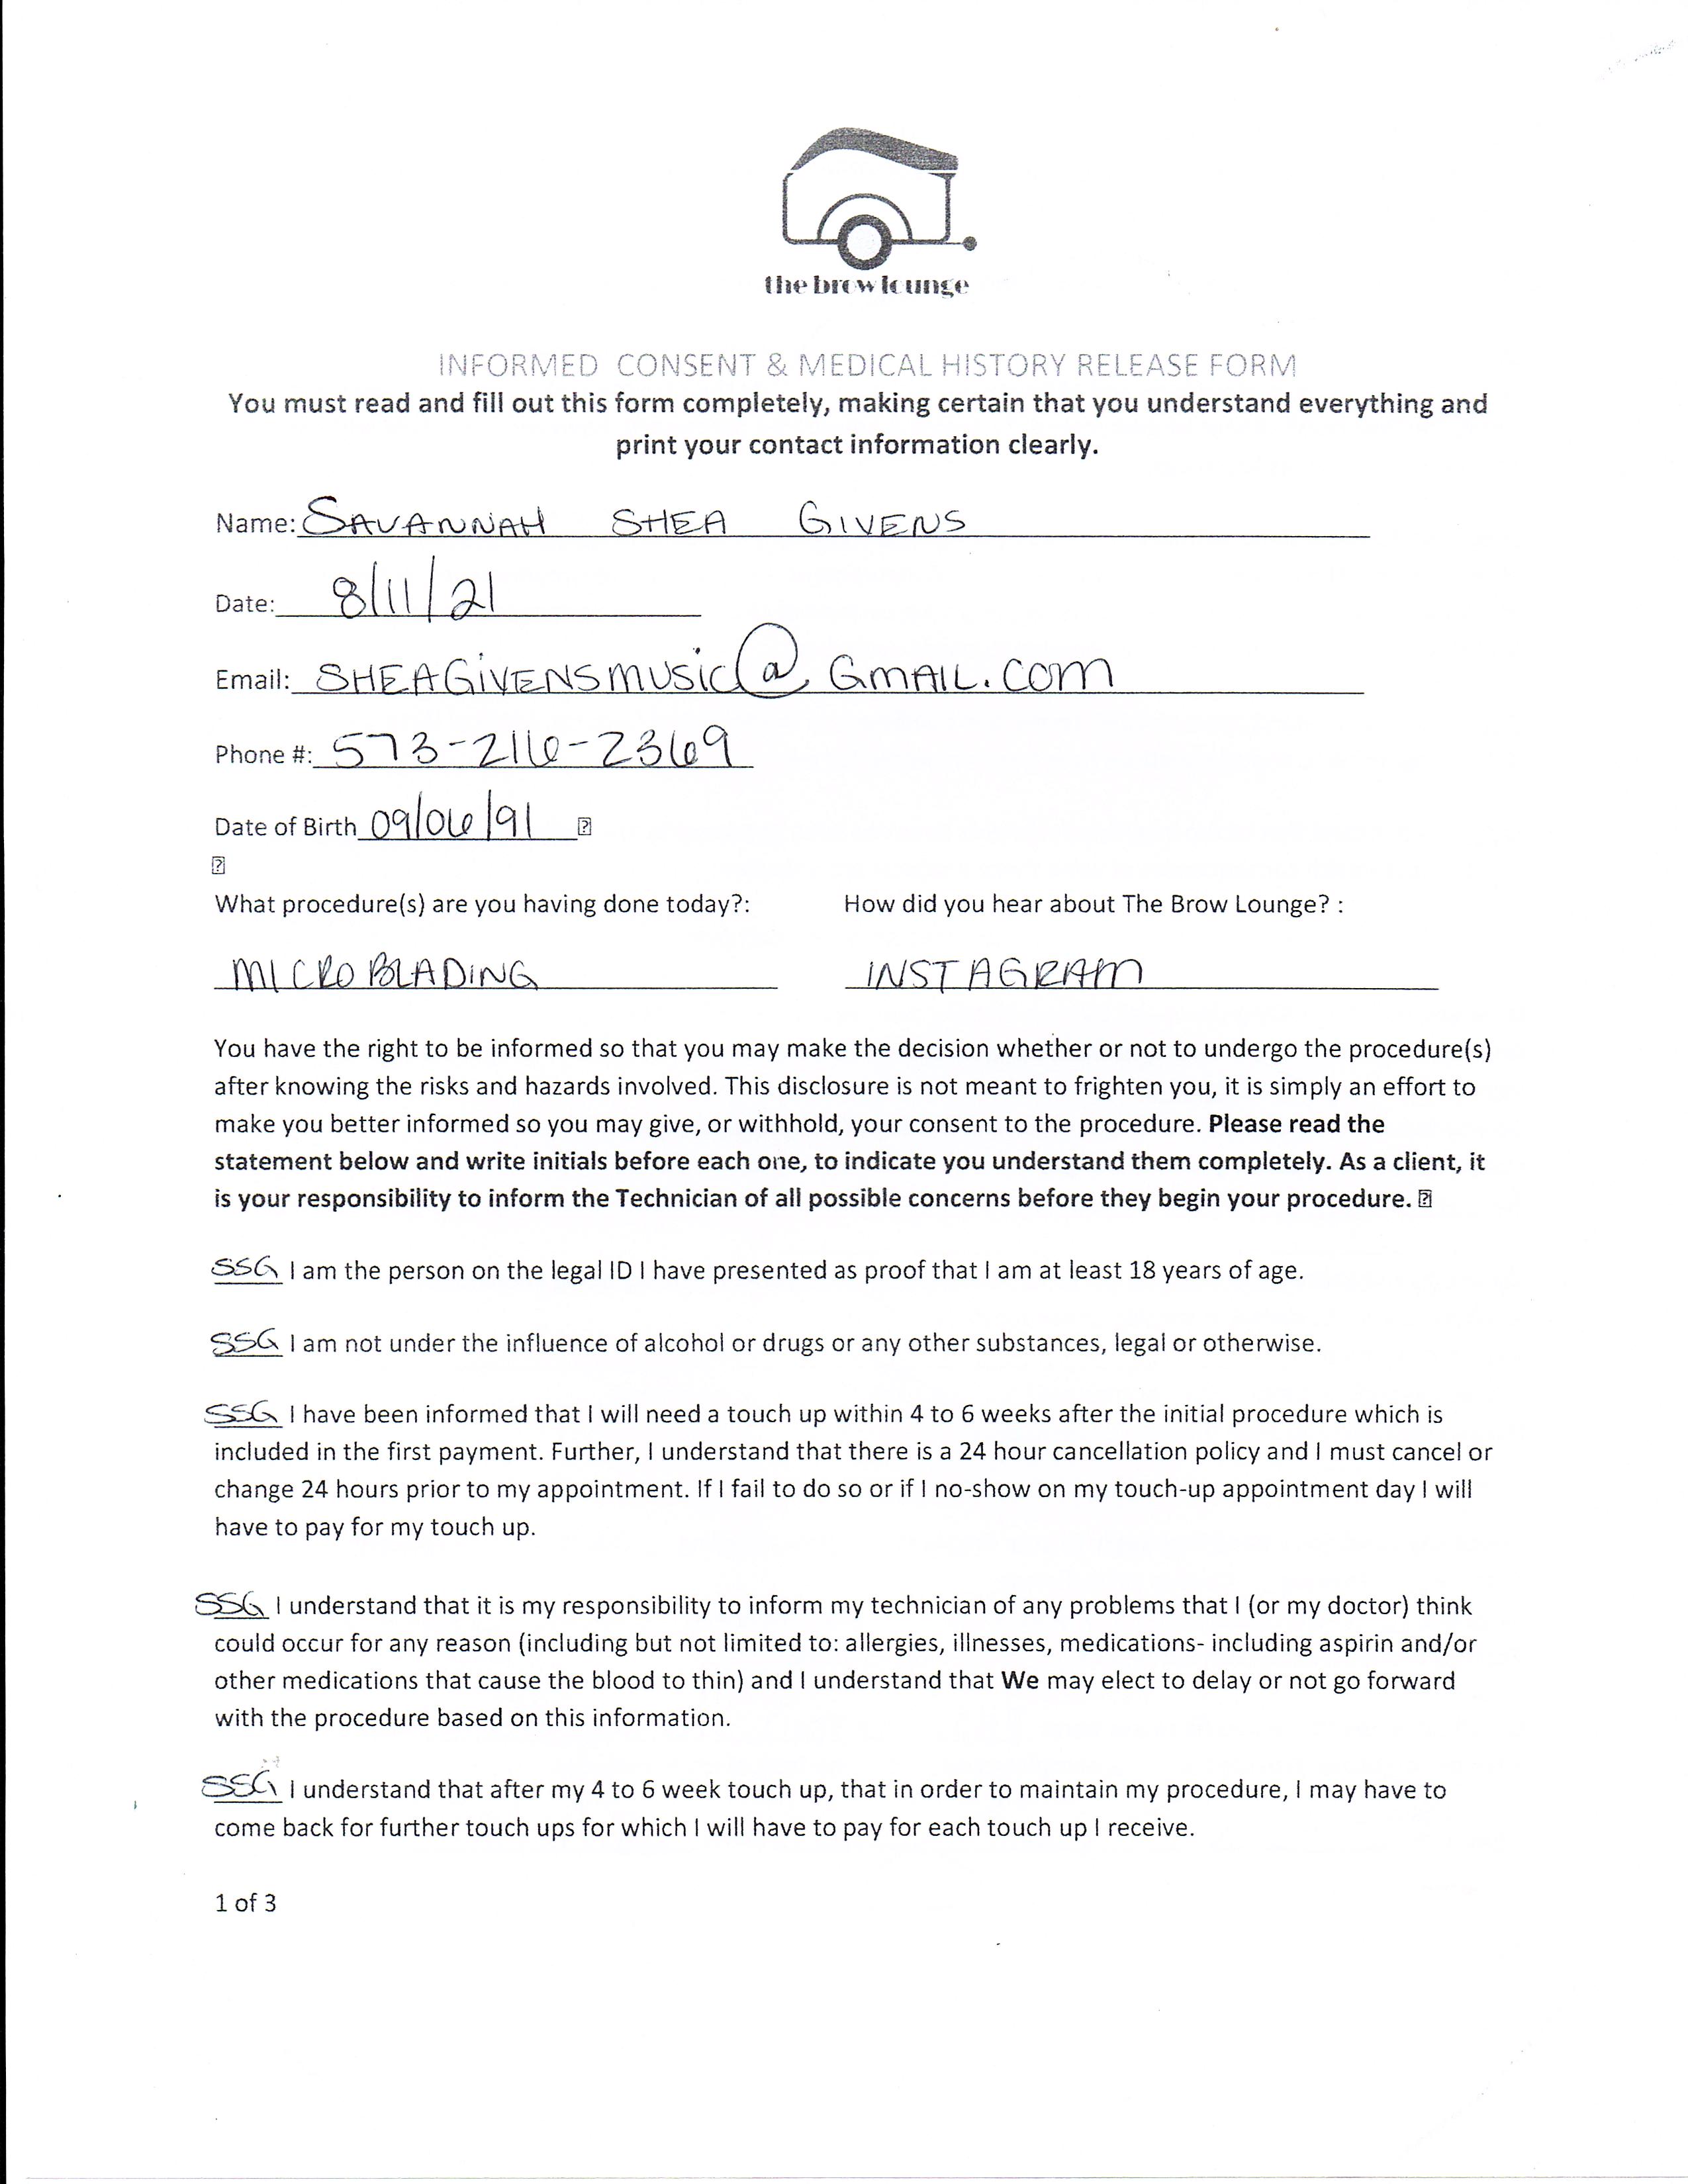 the brow lounge
INFORMED CONSENT & MEDICAL HISTORY RELEASE FORM
You must read and fill out this form completely, making certain that you understand everything and
print your contact information clearly.
Name: SAVANNAH SHEA GIVENS
Date: 8/11/21
Email: SHEAGIVENSMUSIC@GMAIL.COM
Phone #: 573-216-2369
Date of Birth 09/06/91
What procedure(s) are you having done today?: How did you hear about The Brow Lounge? :
MICROBLADING INSTAGRAM
You have the right to be informed so that you may make the decision whether or not to undergo the procedure(s)
after knowing the risks and hazards involved. This disclosure is not meant to frighten you, it is simply an effort to
make you better informed so you may give, or withhold, your consent to the procedure. Please read the
statement below and write initials before each one, to indicate you understand them completely. As a client, it
is your responsibility to inform the Technician of all possible concerns before they begin your procedure.
SSG I am the person on the legal ID I have presented as proof that I am at least 18 years of age.
SSG I am not under the influence of alcohol or drugs or any other substances, legal or otherwise.
SSG I have been informed that I will need a touch up within 4 to 6 weeks after the initial procedure which is
included in the first payment. Further, I understand that there is a 24 hour cancellation policy and I must cancel or
change 24 hours prior to my appointment. If I fail to do so or if I no-show on my touch-up appointment day I will
have to pay for my touch up.
SSG I understand that it is my responsibility to inform my technician of any problems that I (or my doctor) think
could occur for any reason (including but not limited to: allergies, illnesses, medications- including aspirin and/or
other medications that cause the blood to thin) and I understand that We may elect to delay or not go forward
with the procedure based on this information.
SSG I understand that after my 4 to 6 week touch up, that in order to maintain my procedure, I may have to
come back for further touch ups for which I will have to pay for each touch up I receive.
1 of 3